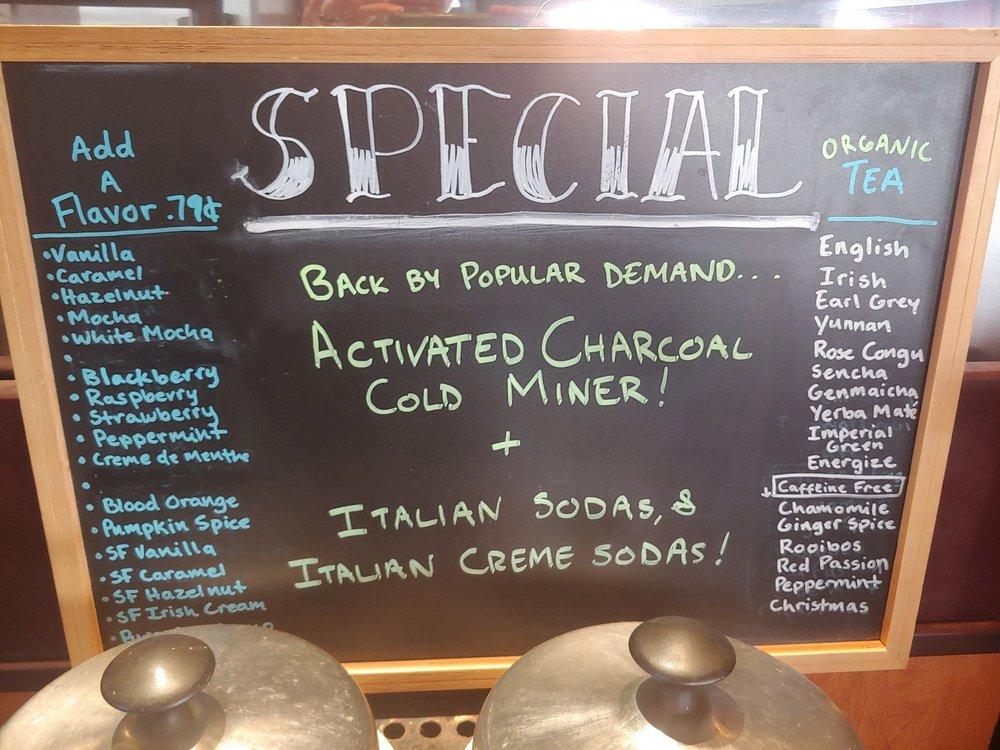 Add
A
Flavor .79¢
• Vanilla
• Caramel
• Hazelnut
• Mocha
• White Mocha
•
• Blackberry
• Raspberry
• Strawberry
• Peppermint
• Creme de Menthe
•
• Blood Orange
• Pumpkin Spice
• SF Vanilla
• SF Caramel
• SF Hazelnut
• SF Irish Cream
SPECIAL
BACK BY POPULAR DEMAND...
ACTIVATED CHARCOAL
COLD MINER!
+
ITALIAN SODAS, &
ITALIAN CREME SODAS!
ORGANIC
TEA
English
Irish
Earl Grey
Yunnan
Rose Congu
Sencha
Genmaicha
Yerba Maté
Imperial
Green
Energize
Caffeine Free
Chamomile
Ginger Spice
Rooibos
Red Passion
Peppermint
Christmas